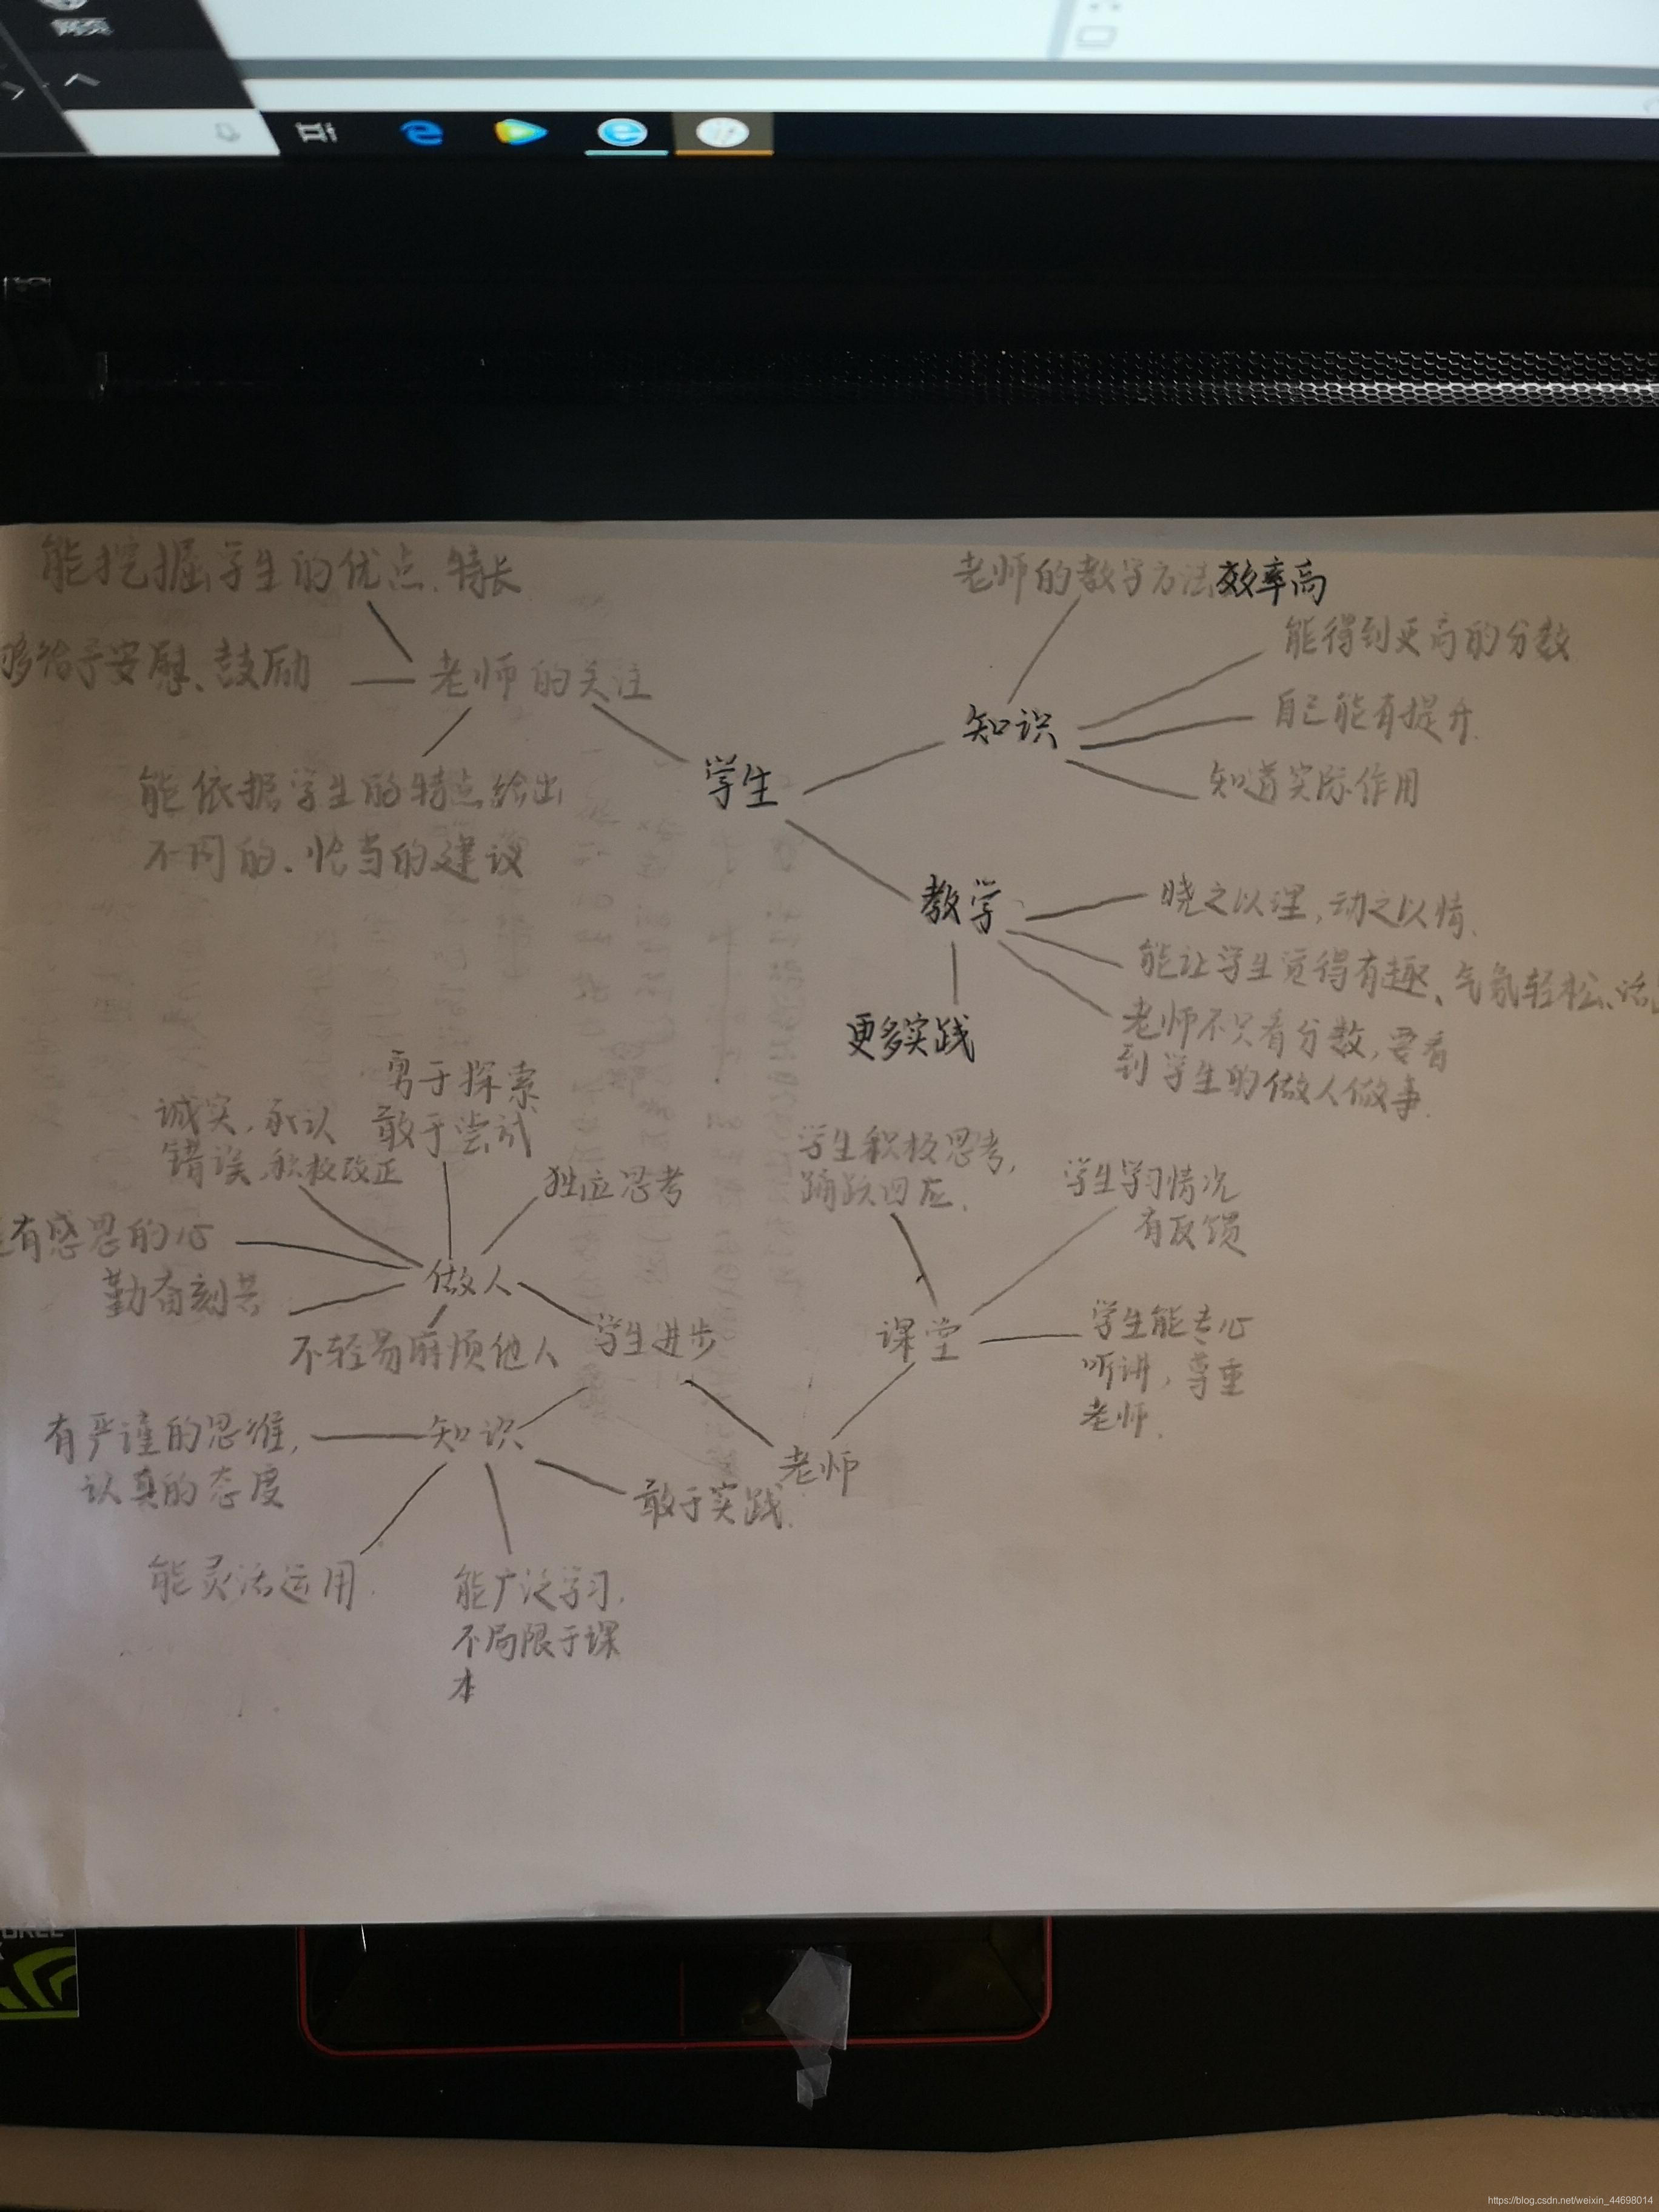 网页
能挖掘学生的优点、特长
够给予安慰、鼓励
老师的关注
能依据学生的特点给出
不同的、恰当的建议
学生
老师的教学方法效率高
知识
能得到更高的分数
自己能有提升
知道实际作用
教学
晓之以理,动之以情.
能让学生觉得有趣、气氛轻松、活
老师不只看分数,要看
到学生的做人做事.
更多实践
勇于探索
敢于尝试
诚实,承认
错误,积极改正
独立思考
有感恩的心
勤奋刻苦
做人
不轻易麻烦他人
学生进步
有严谨的思维,
认真的态度
知识
敢于实践.
能灵活运用.
能广泛学习.
不局限于课
本
老师
课堂
学生积极思考,
踊跃回应.
学生学习情况
有反馈
学生能专心
听讲,尊重
老师.
https://blog.csdn.net/weixin_44698014